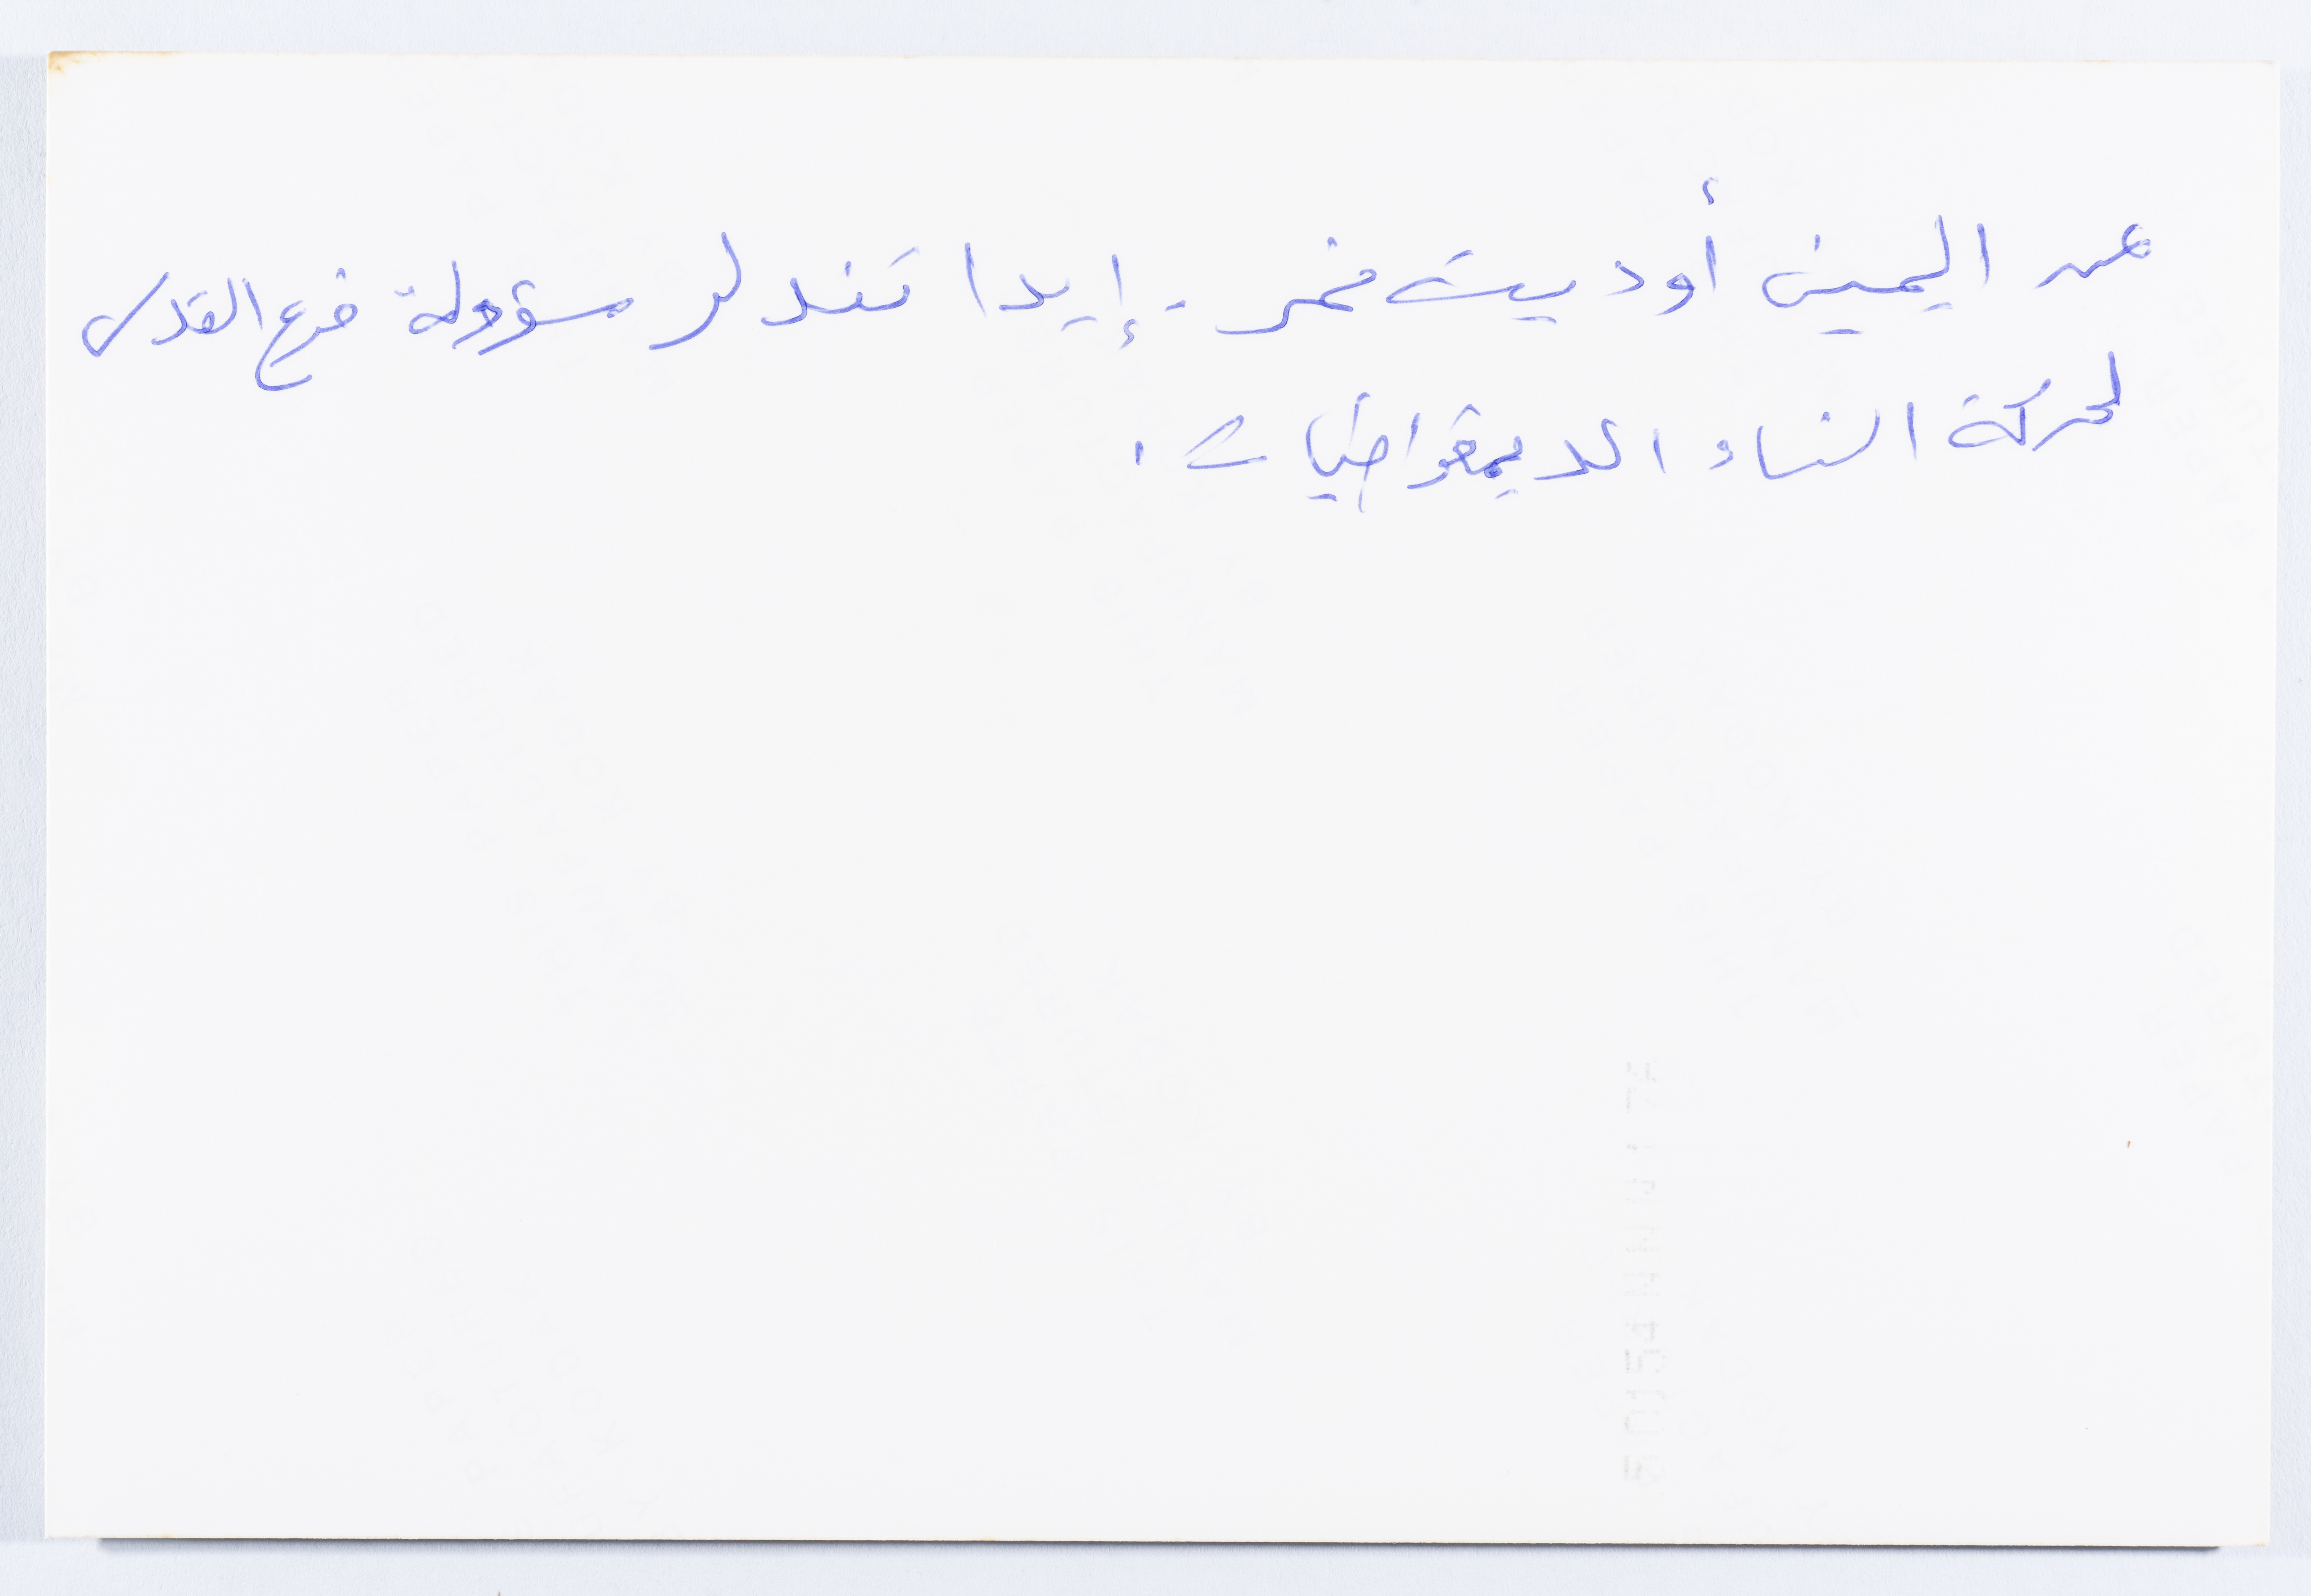 عن اليمين أوديت نمر - إيدا تندلر مسؤولة فرع القدس
لحركة النساء الديمقراطيات.